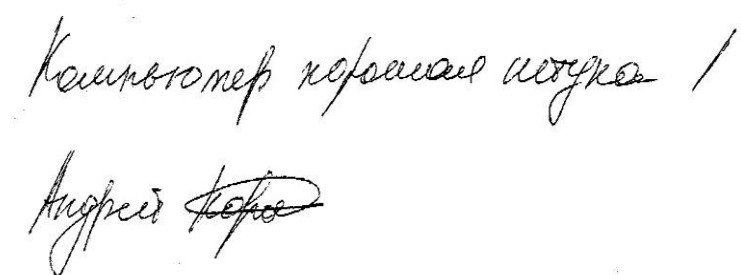 Компьютер хорошая штука !
Андрей